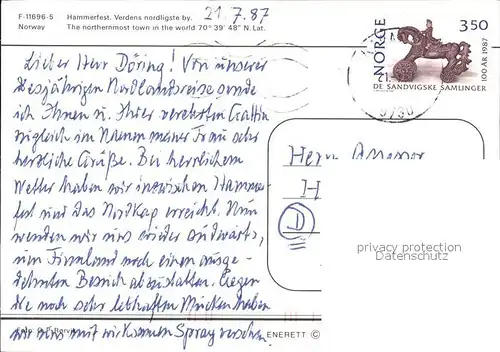 F-11696-5 Hammerfest. Verdens nordligste by.
Norway The northernmost town in the world 70° 39' 48" N. Lat.
21.7.87
NORGE 350
DE SANDVIGSKE SAMLINGER
100 ÅR 1987
Lieber Herr Döring! Von unserer
diesjährigen Nordlandreise sende
ich Ihnen u. Ihrer verehrten Gattin
zugleich im Namen meiner Frau sehr
herzliche Grüße. Bei herrlichem
Wetter haben wir inzwischen Hammer-
fest und das Nordkap erreicht. Nun
wenden wir uns wieder südwärts,
um Finnland noch einen ausge-
dehnten Besuch abzustatten. Gegen
die noch sehr lebhaften Mücken haben
wir uns mit wirksamen Spray versehen.
Herrn
D
privacy protection
Datenschutz
ENERETT ©